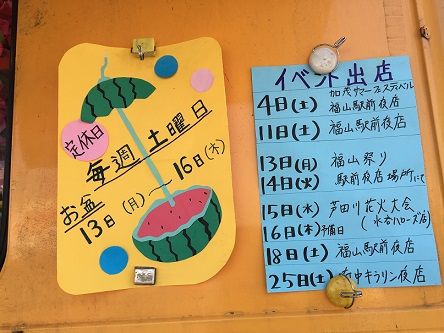 定休日
毎週土曜日
お盆
13日(月)〜16日(木)
イベント出店
4日(土) 加茂サマーフェスティバル
福山駅前夜店
11日(土) 福山駅前夜店
13日(月) 福山祭り
14日(火) 駅前夜店場所にて
15日(水) 芦田川花火大会
(水谷ハローズ店)
16日(木)予備日
18日(土) 福山駅前夜店
25日(土) 府中キラリン夜店